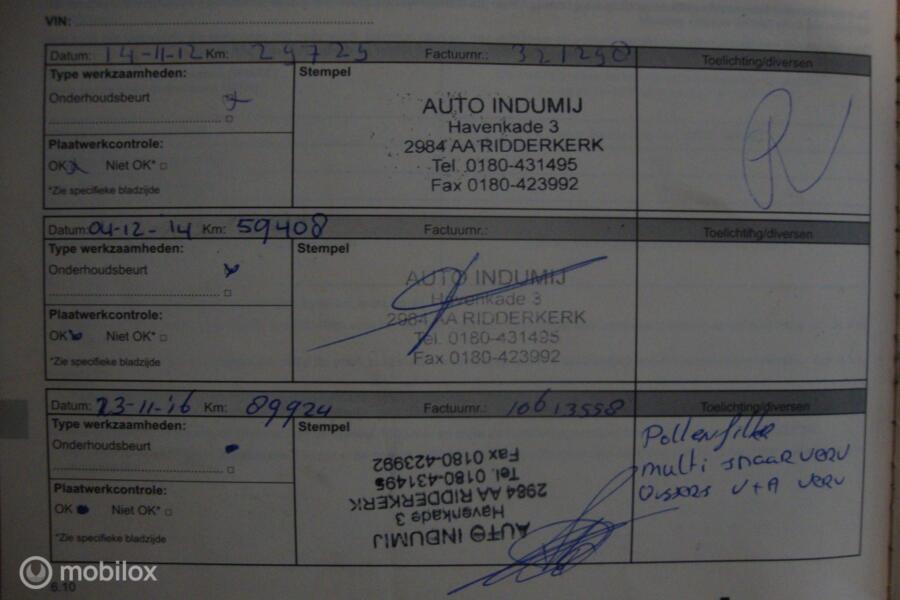 VIN:
Datum: 14-11-12 Km: 29725 Factuurnr.: 321298 Toelichting/diversen
Type werkzaamheden:
Stempel
Onderhoudsbeurt
Plaatwerkcontrole:
OK Niet OK*
*Zie specifieke bladzijde
AUTO INDUMIJ
Havenkade 3
2984 AA RIDDERKERK
Tel. 0180-431495
Fax 0180-423992
Datum: 04-12-'14 Km: 59408 Factuurnr.: Toelichting/diversen
Type werkzaamheden:
Stempel
Onderhoudsbeurt
Plaatwerkcontrole:
OK Niet OK*
*Zie specifieke bladzijde
AUTO INDUMIJ
Havenkade 3
2984 AA RIDDERKERK
Tel. 0180-431495
Fax 0180-423992
Datum: 23-11-'16 Km: 89924 Factuurnr.: 10613558 Toelichting/diversen
Type werkzaamheden:
Stempel
Onderhoudsbeurt
Plaatwerkcontrole:
OK Niet OK*
*Zie specifieke bladzijde
AUTO INDUMIJ
Havenkade 3
2984 AA RIDDERKERK
Tel. 0180-431495
Fax 0180-423992
Pollenfilter
multi snaar verv
V+A verv
6.10
mobilox